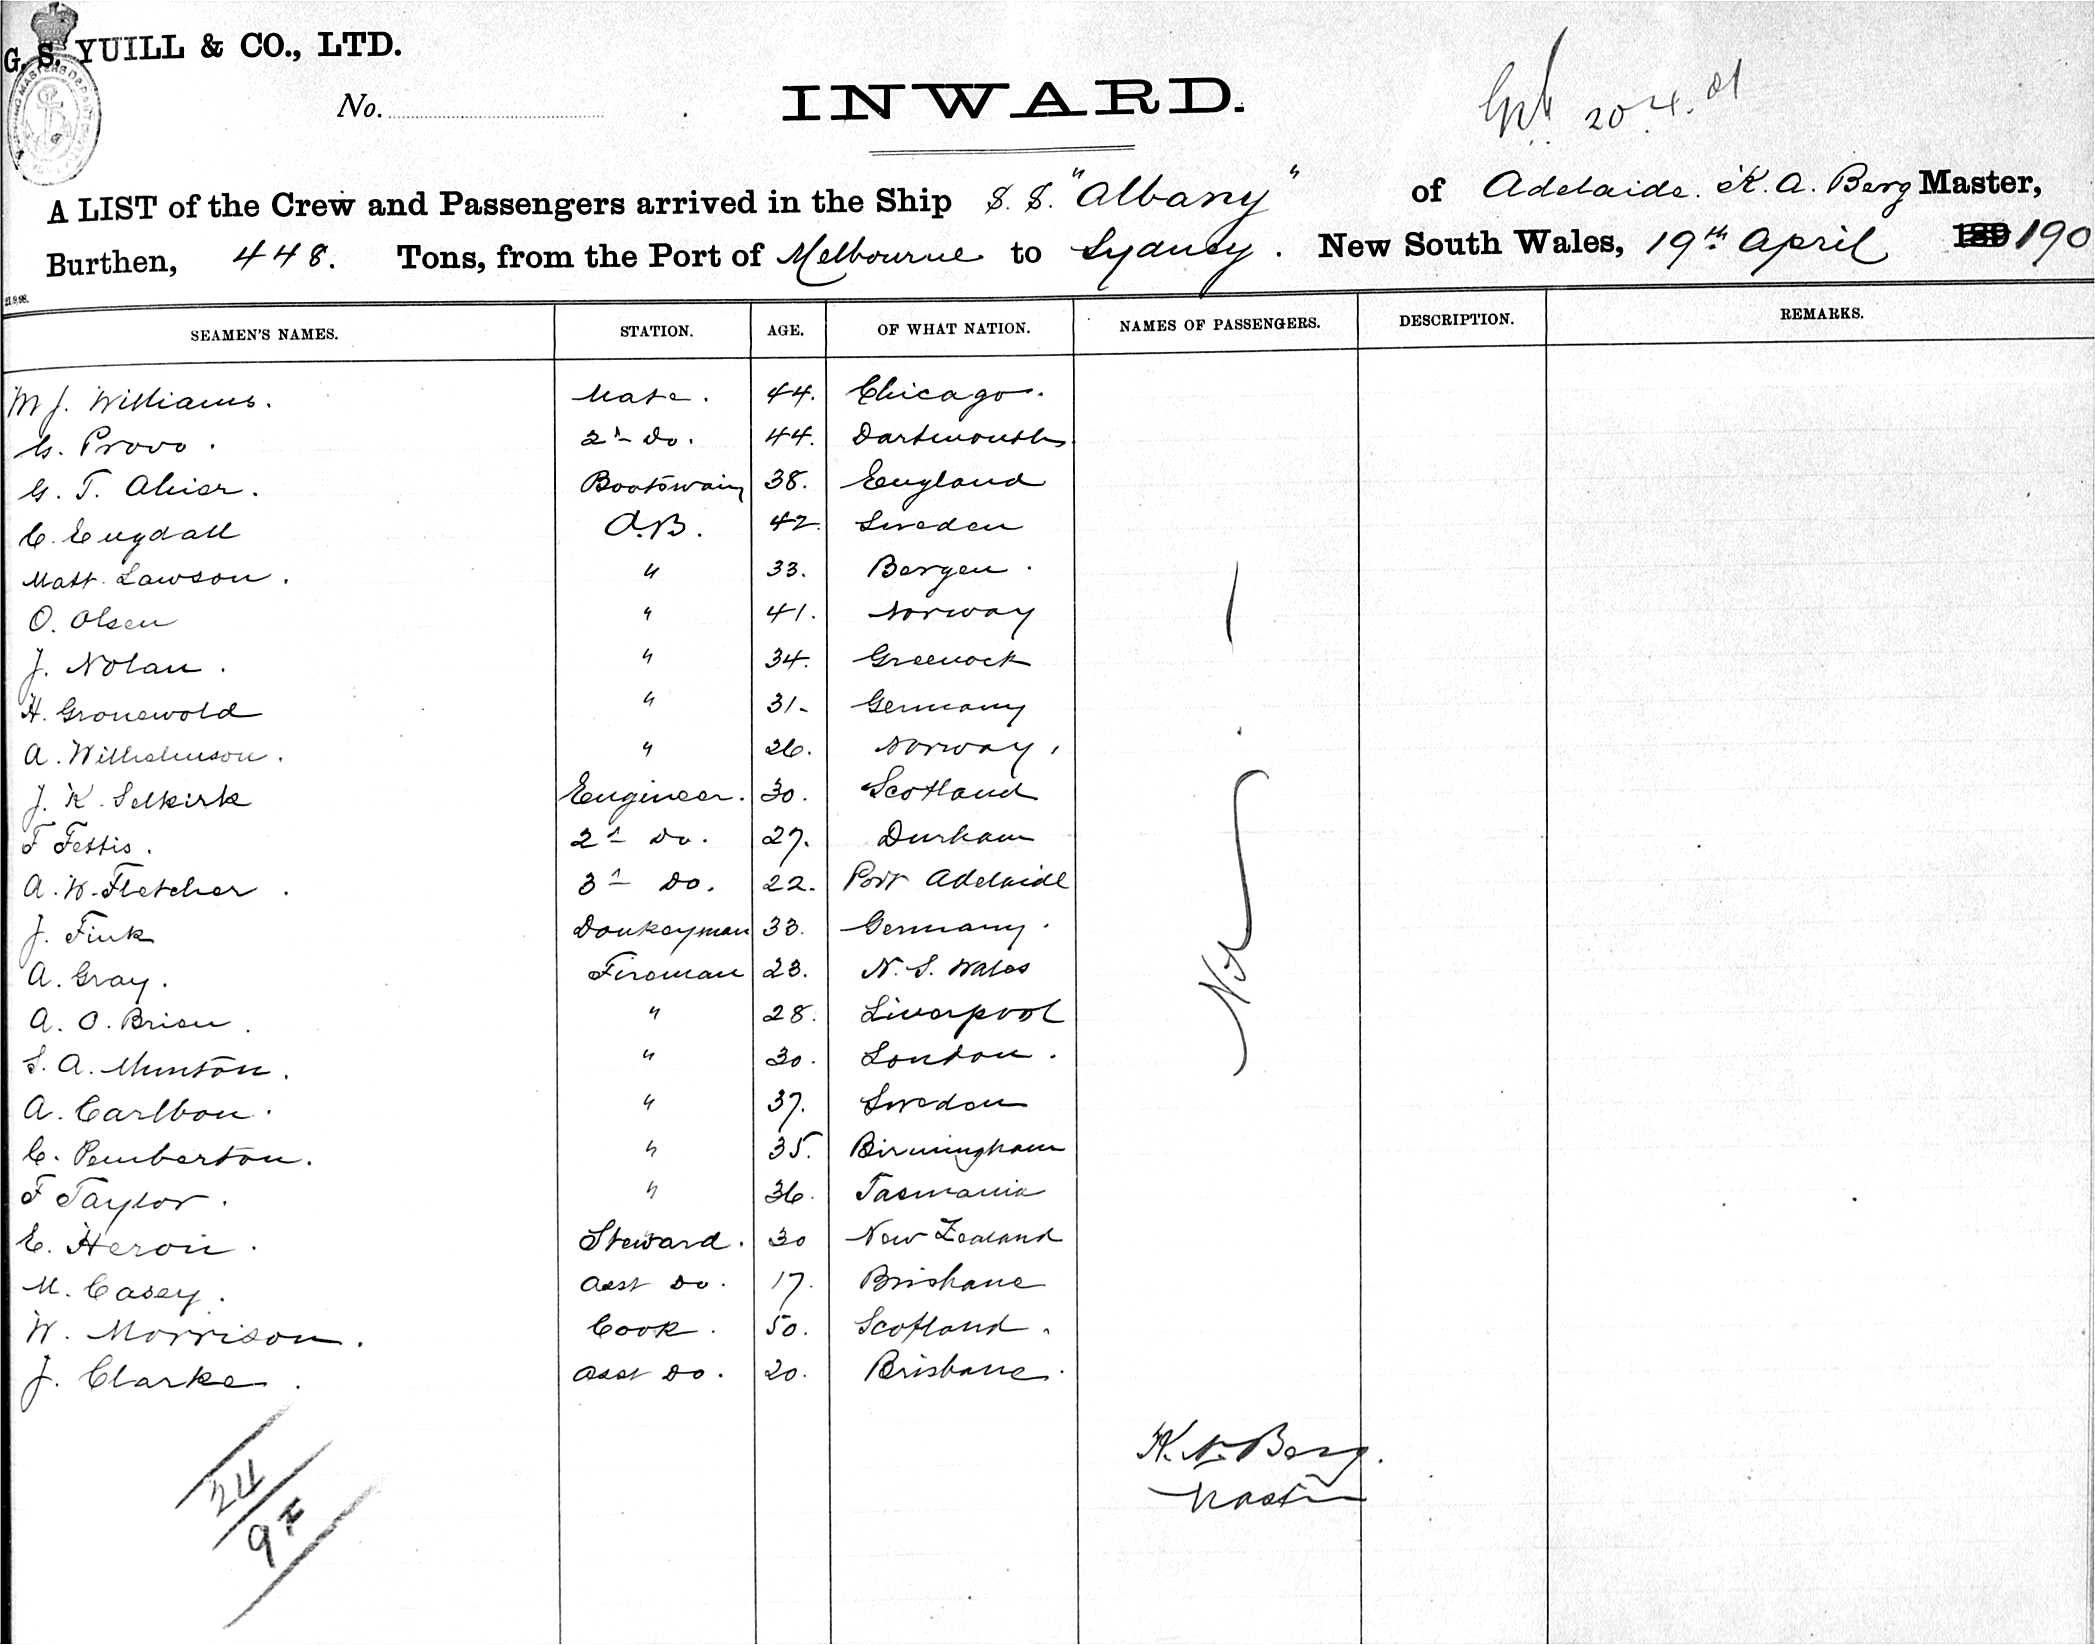 G. S. YUILL & CO., LTD.
No.
INWARD.
20.4.01
A LIST of the Crew and Passengers arrived in the Ship S. S. "Albany" of Adelaide. K. A. Berg Master,
Burthen, 448. Tons, from the Port of Melbourne to Sydney. New South Wales, 19th April 189 190
21.9.98.
SEAMEN'S NAMES. STATION. AGE. OF WHAT NATION. NAMES OF PASSENGERS. DESCRIPTION. REMARKS.
M J. Williams. Mate. 44. Chicago.
G. Provo. 2nd Do. 44. Dartmouth
G. T. Ahier. Boatswain 38. England
C. Engdall A.B. 42. Sweden
Matt. Lawson. " 33. Bergen.
O. Olsen " 41. Norway
J. Nolan. " 34. Greenock
H. Gronewold " 31- Germany
A. Wilhelmson. " 26. Norway.
J. K. Selkirk Engineer. 30. Scotland
F Fettis. 2nd Do. 27. Durham
A. W. Fletcher. 3rd Do. 22. Port Adelaide
J. Fink Donkeyman 33. Germany.
A. Gray. Fireman 23. N. S. Wales
A. O. Brien. " 28. Liverpool
S. A. Munton. " 30. London.
A. Carlbon. " 37. Sweden
C. Pemberton. " 35. Birmingham
F Taylor. " 36. Tasmania
E. Heron. Steward. 30 New Zealand
M. Casey. Asst Do. 17. Brisbane
W. Morrison. Cook. 50. Scotland.
J. Clarke. Asst Do. 20. Brisbane.
K. A. Berg.
Master
24